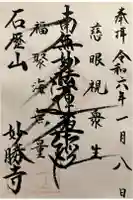 奉拝 令和六年一月八日
慈眼視衆生
南無妙法蓮華経
福聚海無量
石歴山 妙勝寺